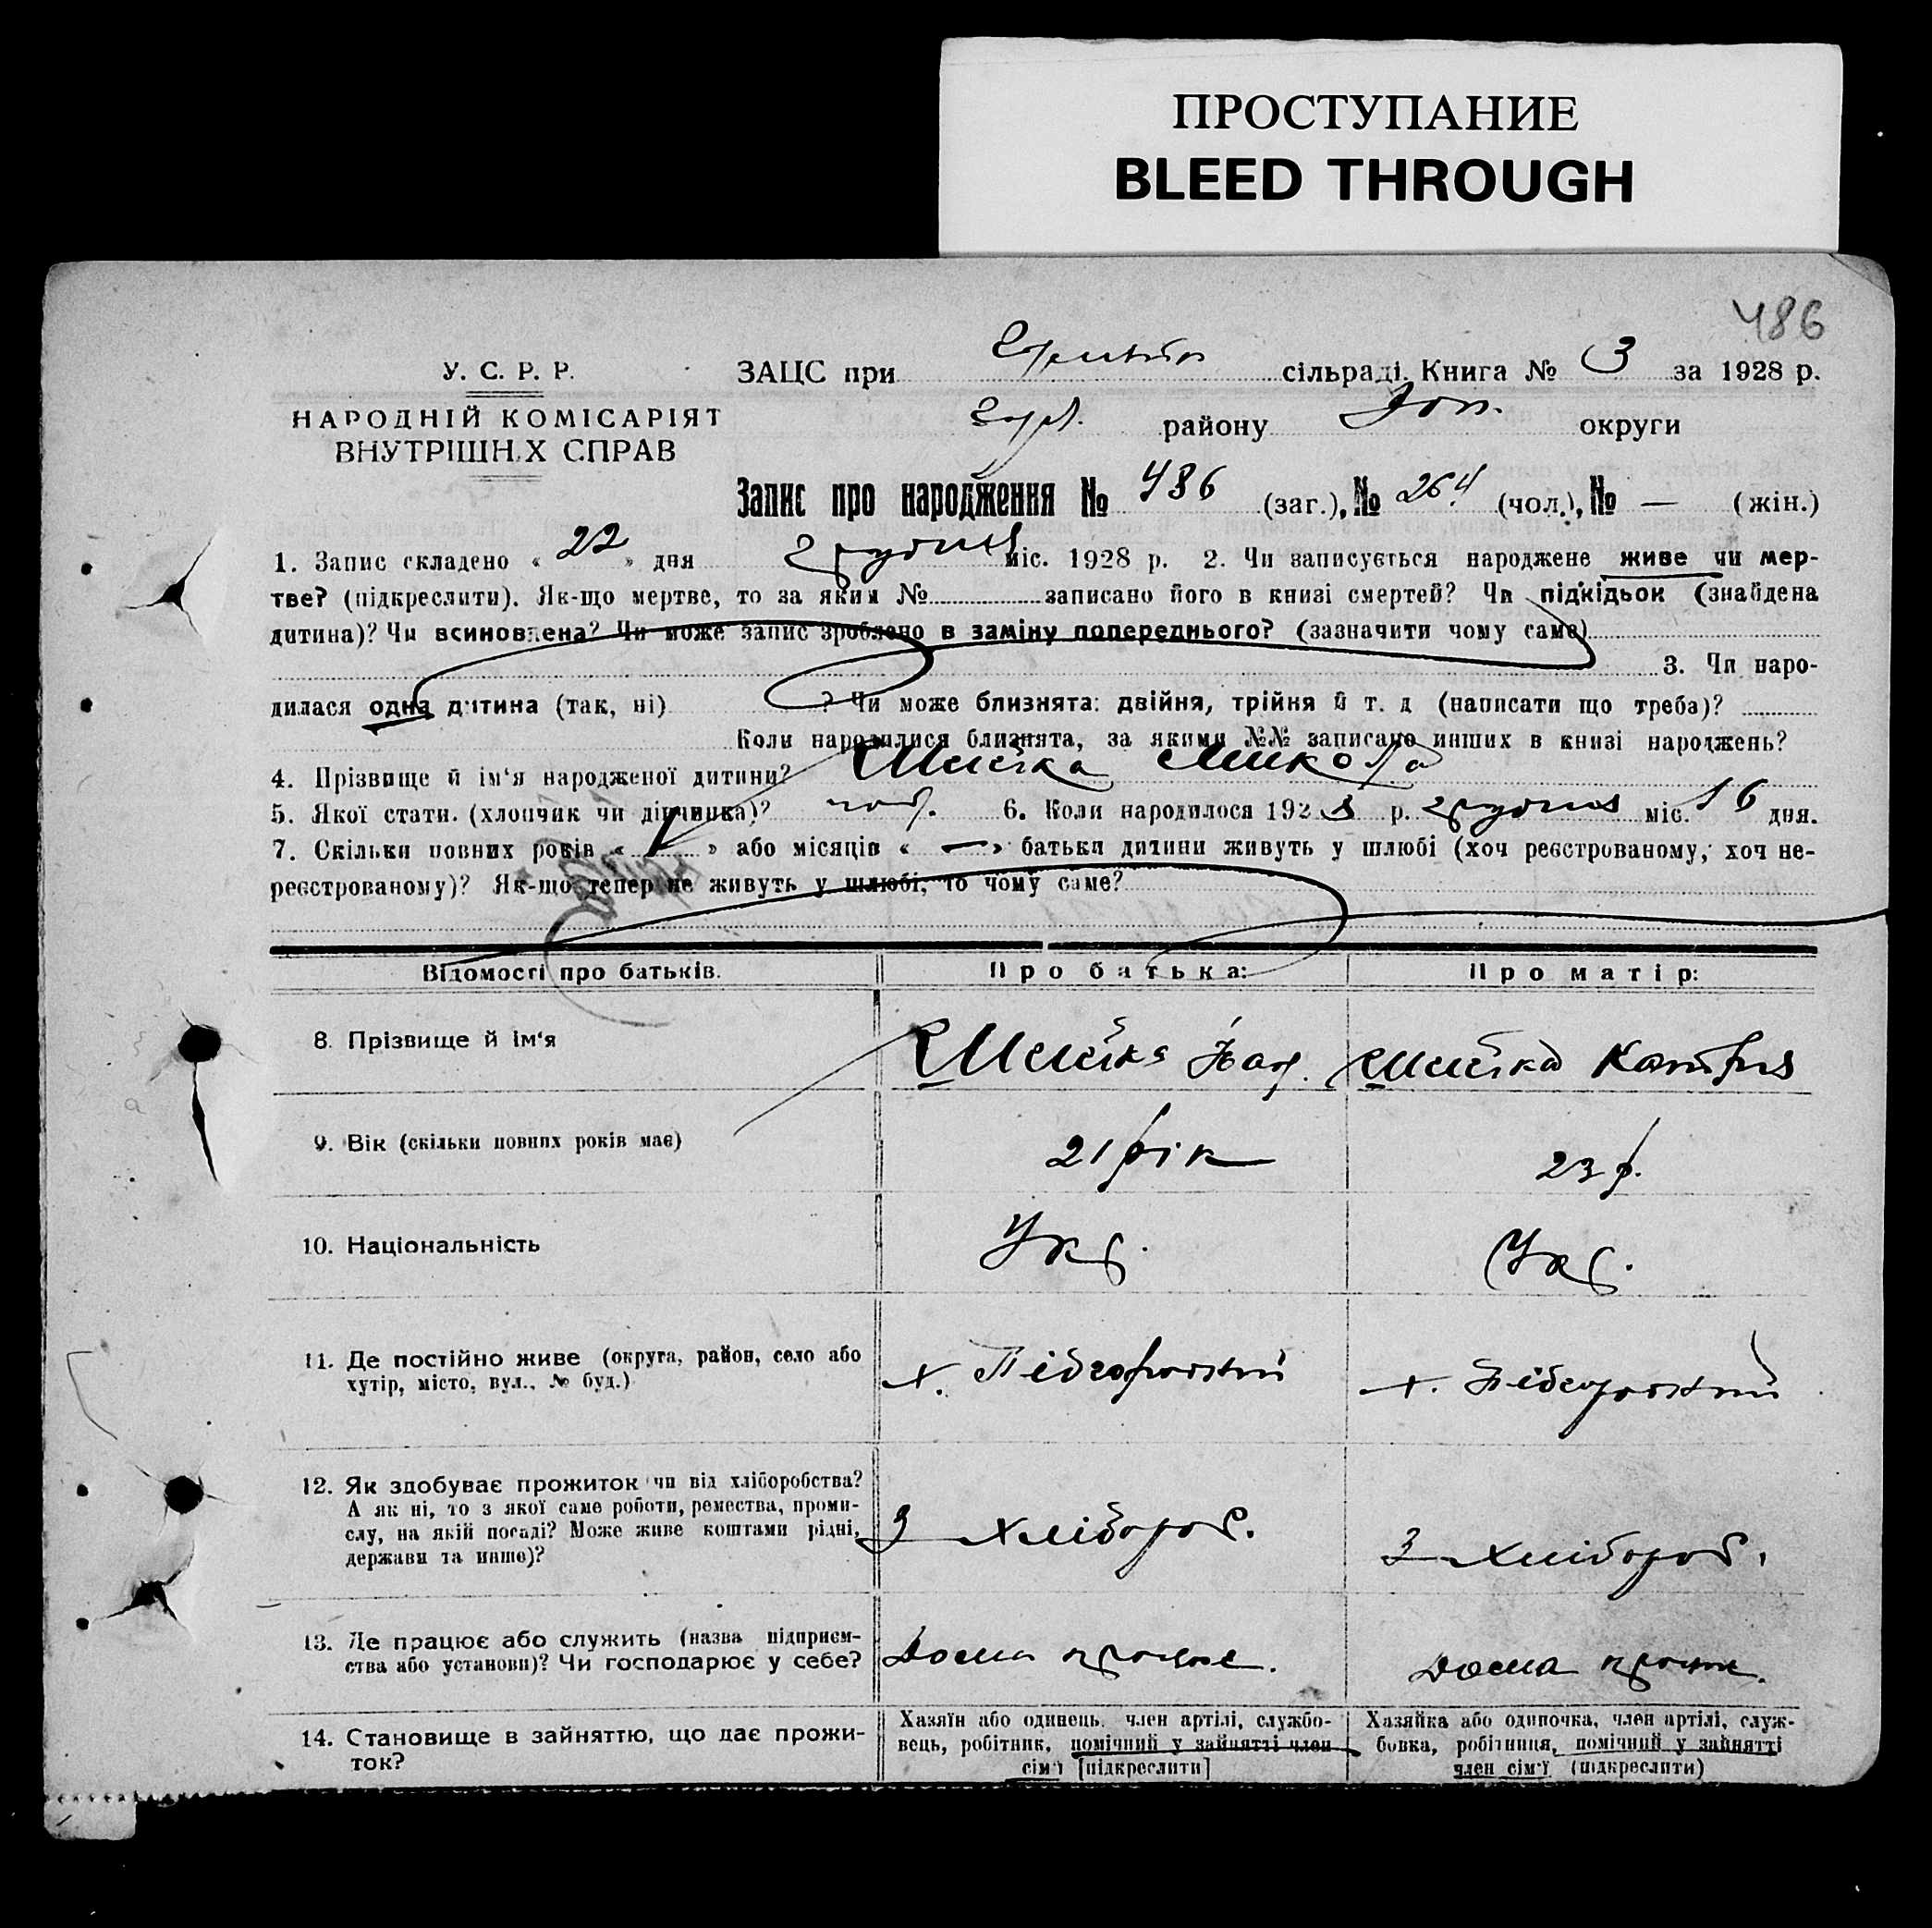 ПРОСТУПАНИЕ
BLEED THROUGH
486
У. С. Р. Р.
НАРОДНІЙ КОМІСАРІЯТ
ВНУТРІШНІХ СПРАВ
ЗАЦС при сільраді. Книга № 3 за 1928 р.
району округи
Запис про народження № 486 (заг.), № 264 (чол.), № — (жін.)
1. Запис складено « 22 » дня грудня міс. 1928 р. 2. Чи записується народжене живе чи мер-
тве? (підкреслити). Як-що мертве, то за яким № записано його в книзі смертей? Чи підкідьок (знайдена
дитина)? Чи всиновлена? Чи може запис зроблено в заміну попереднього? (зазначити чому саме)
3. Чи наро-
дилася одна дитина (так, ні) ? Чи може близнята: двійня, трійня й т. д (написати що треба)?
Коли народилися близнята, за якими №№ записано инших в книзі народжень?
4. Прізвище й ім‘я народженої дитини? Шийка Микола
5. Якої стати. (хлопчик чи дівчинка)? чол. 6. Коли народилося 1928 р. грудня міс. 16 дня.
7. Скільки повних років « 1 » або місяців « — » батьки дитини живуть у шлюбі (хоч реєстрованому, хоч не-
реєстрованому)? Як-що тепер не живуть у шлюбі, то чому саме?
Відомості про батьків.
Про батька:
Про матір:
8. Прізвище й ім‘я
Шийка
Шийка
9. Вік (скільки повних років має)
21 рік
23 р.
10. Національність
Укр.
Укр.
11. Де постійно живе (округа, район, село або
хутір, місто, вул., № буд.)
х. Підгоровский
х. Підгоровский
12. Як здобуває прожиток чи від хліборобства?
А як ні, то з якої саме роботи, ремества, проми-
слу, на якій посаді? Може живе коштами рідні,
держави та инше)?
З хлібороб.
З хлібороб.
13. Де працює або служить (назва підприєм-
ства або установи)? Чи господарює у себе?
Дома працює.
Дома працює.
14. Становище в зайняттю, що дає прожи-
ток?
Хазяїн або одинець. член артілі, службо-
вець, робітник, помічний у зайнятті член
сім‘ї [підкреслити]
Хазяйка або одиночка, член артілі, служ-
бовка, робітниця, помічний у зайнятті
член сім‘ї (підкреслити)